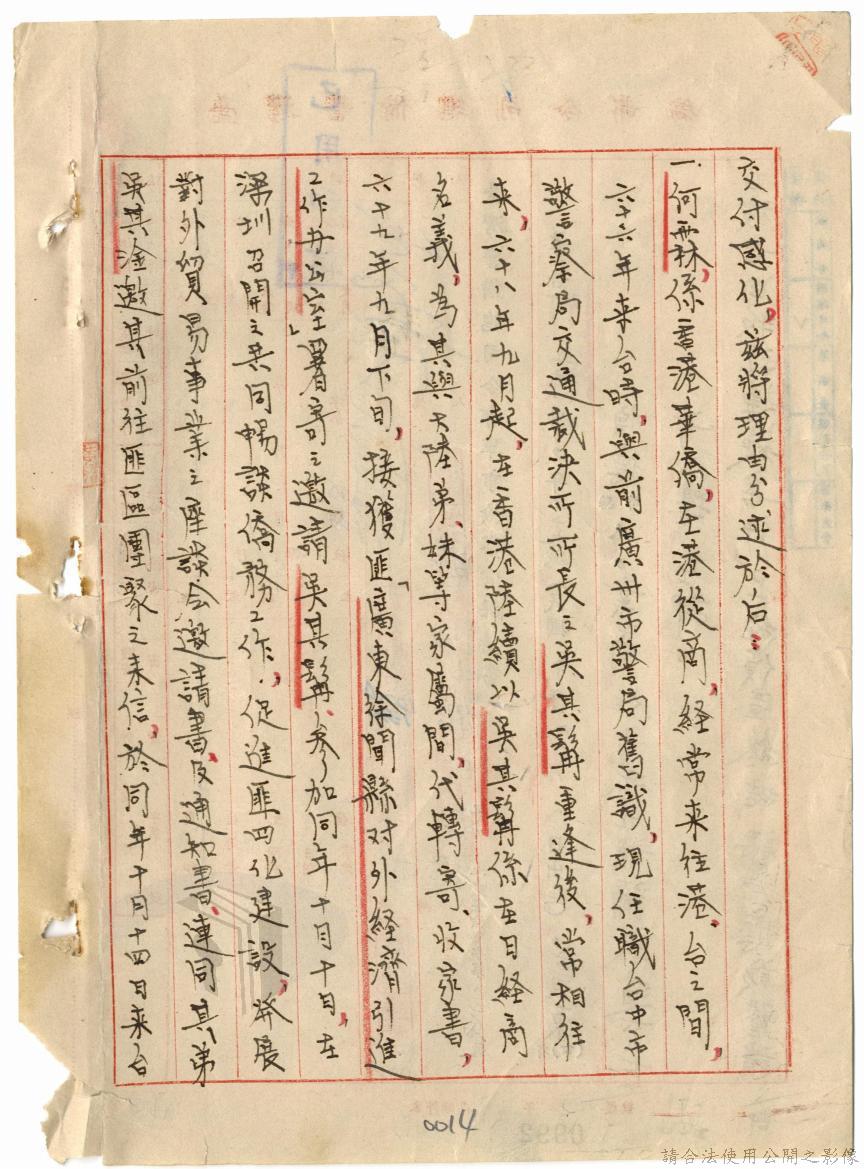 交付感化，茲將理由分述於后：
一.何霖，係香港華僑，在港從商，経常来往港、台之間，
六十六年来台時，與前廣州市警局舊識，現任職台中市
警察局交通裁決所所長之吳其髯重逢後，常相往
来，六十八年九月起，在香港陸續以吳其髯係在日経商
名義，為其與大陸弟、妹等家屬間，代轉寄、收家書，
六十九年九月下旬，接獲匪「廣東徐聞縣对外経濟引進
工作办公室」署寄之邀請吳其髯，參加同年十月十日，在
深圳召開之共同暢談僑務工作，促進匪四化建設，發展
對外貿易事業之座談会邀請書，及通知書，連同其弟
吳其淦邀其前往匪區團聚之来信，於同年十月十四日来台
已用
0014
0992
請合法使用公開之影像